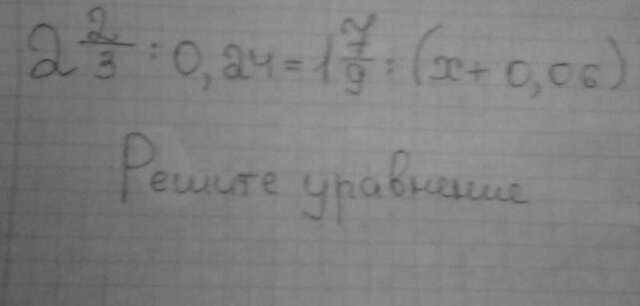 2 2/3 : 0,24 = 1 7/9 : (x + 0,06)
Решите уравнение